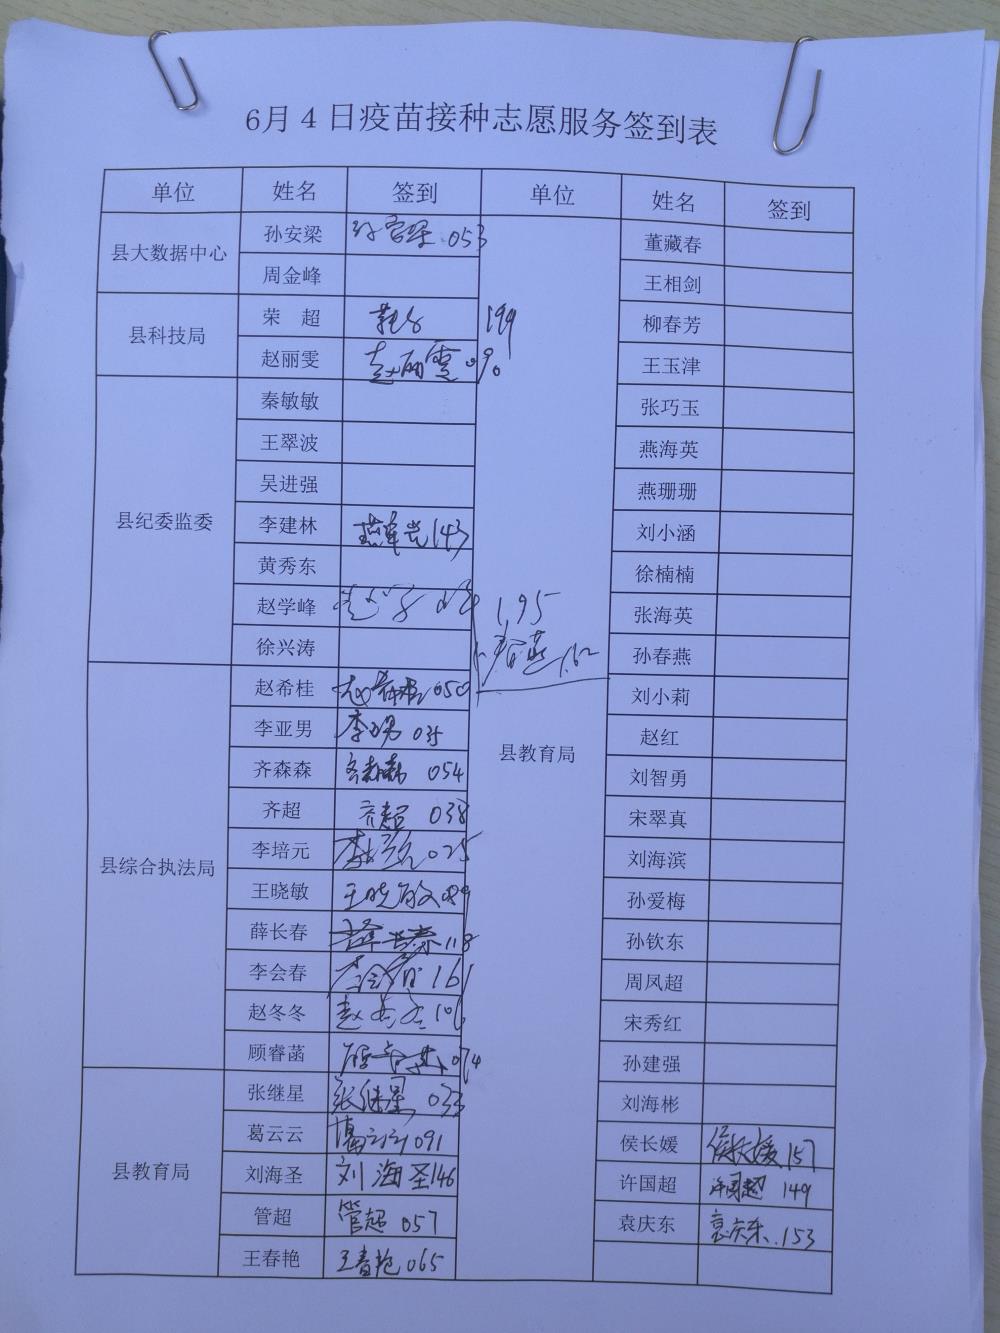 6月4日疫苗接种志愿服务签到表
单位 姓名 签到 单位 姓名 签到
县大数据中心 孙安梁 孙安梁 053 董藏春
周金峰 王相剑
县科技局 荣 超 199 柳春芳
赵丽雯 赵丽雯 090 王玉津
县纪委监委 秦敏敏 张巧玉
王翠波 燕海英
吴进强 燕珊珊
李建林 143 刘小涵
黄秀东 徐楠楠
赵学峰 195 张海英
徐兴涛 春燕 162 孙春燕
县综合执法局 赵希桂 赵希桂 050 县教育局 刘小莉
李亚男 李亚男 035 赵红
齐森森 齐森森 054 刘智勇
齐超 齐超 038 宋翠真
李培元 李培元 025 刘海滨
王晓敏 王晓敏 089 孙爱梅
薛长春 薛长春 118 孙钦东
李会春 李会春 161 周凤超
赵冬冬 赵冬冬 106 宋秀红
顾睿菡 074 孙建强
县教育局 张继星 张继星 033 刘海彬
葛云云 葛云云 091 侯长媛 侯长媛 157
刘海圣 刘海圣 146 许国超 许国超 149
管超 管超 057 袁庆东 袁庆东 153
王春艳 王春艳 065